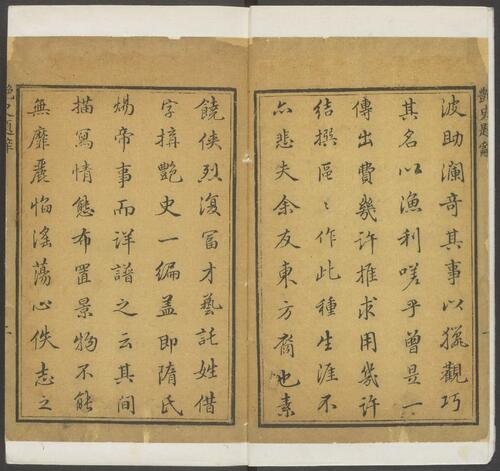 波助瀾奇其事以獵觀巧
其名以漁利嗟乎曾是一
傳出費幾許推求用幾許
結撰區〻作此種生涯不
亦悲夫余友東方裔也素
饒俠烈復富才藝託姓借
字搆艷史一編蓋即隋氏
煬帝事而詳譜之云其間
描寫情態布置景物不能
無靡麗慆滛蕩心佚志之